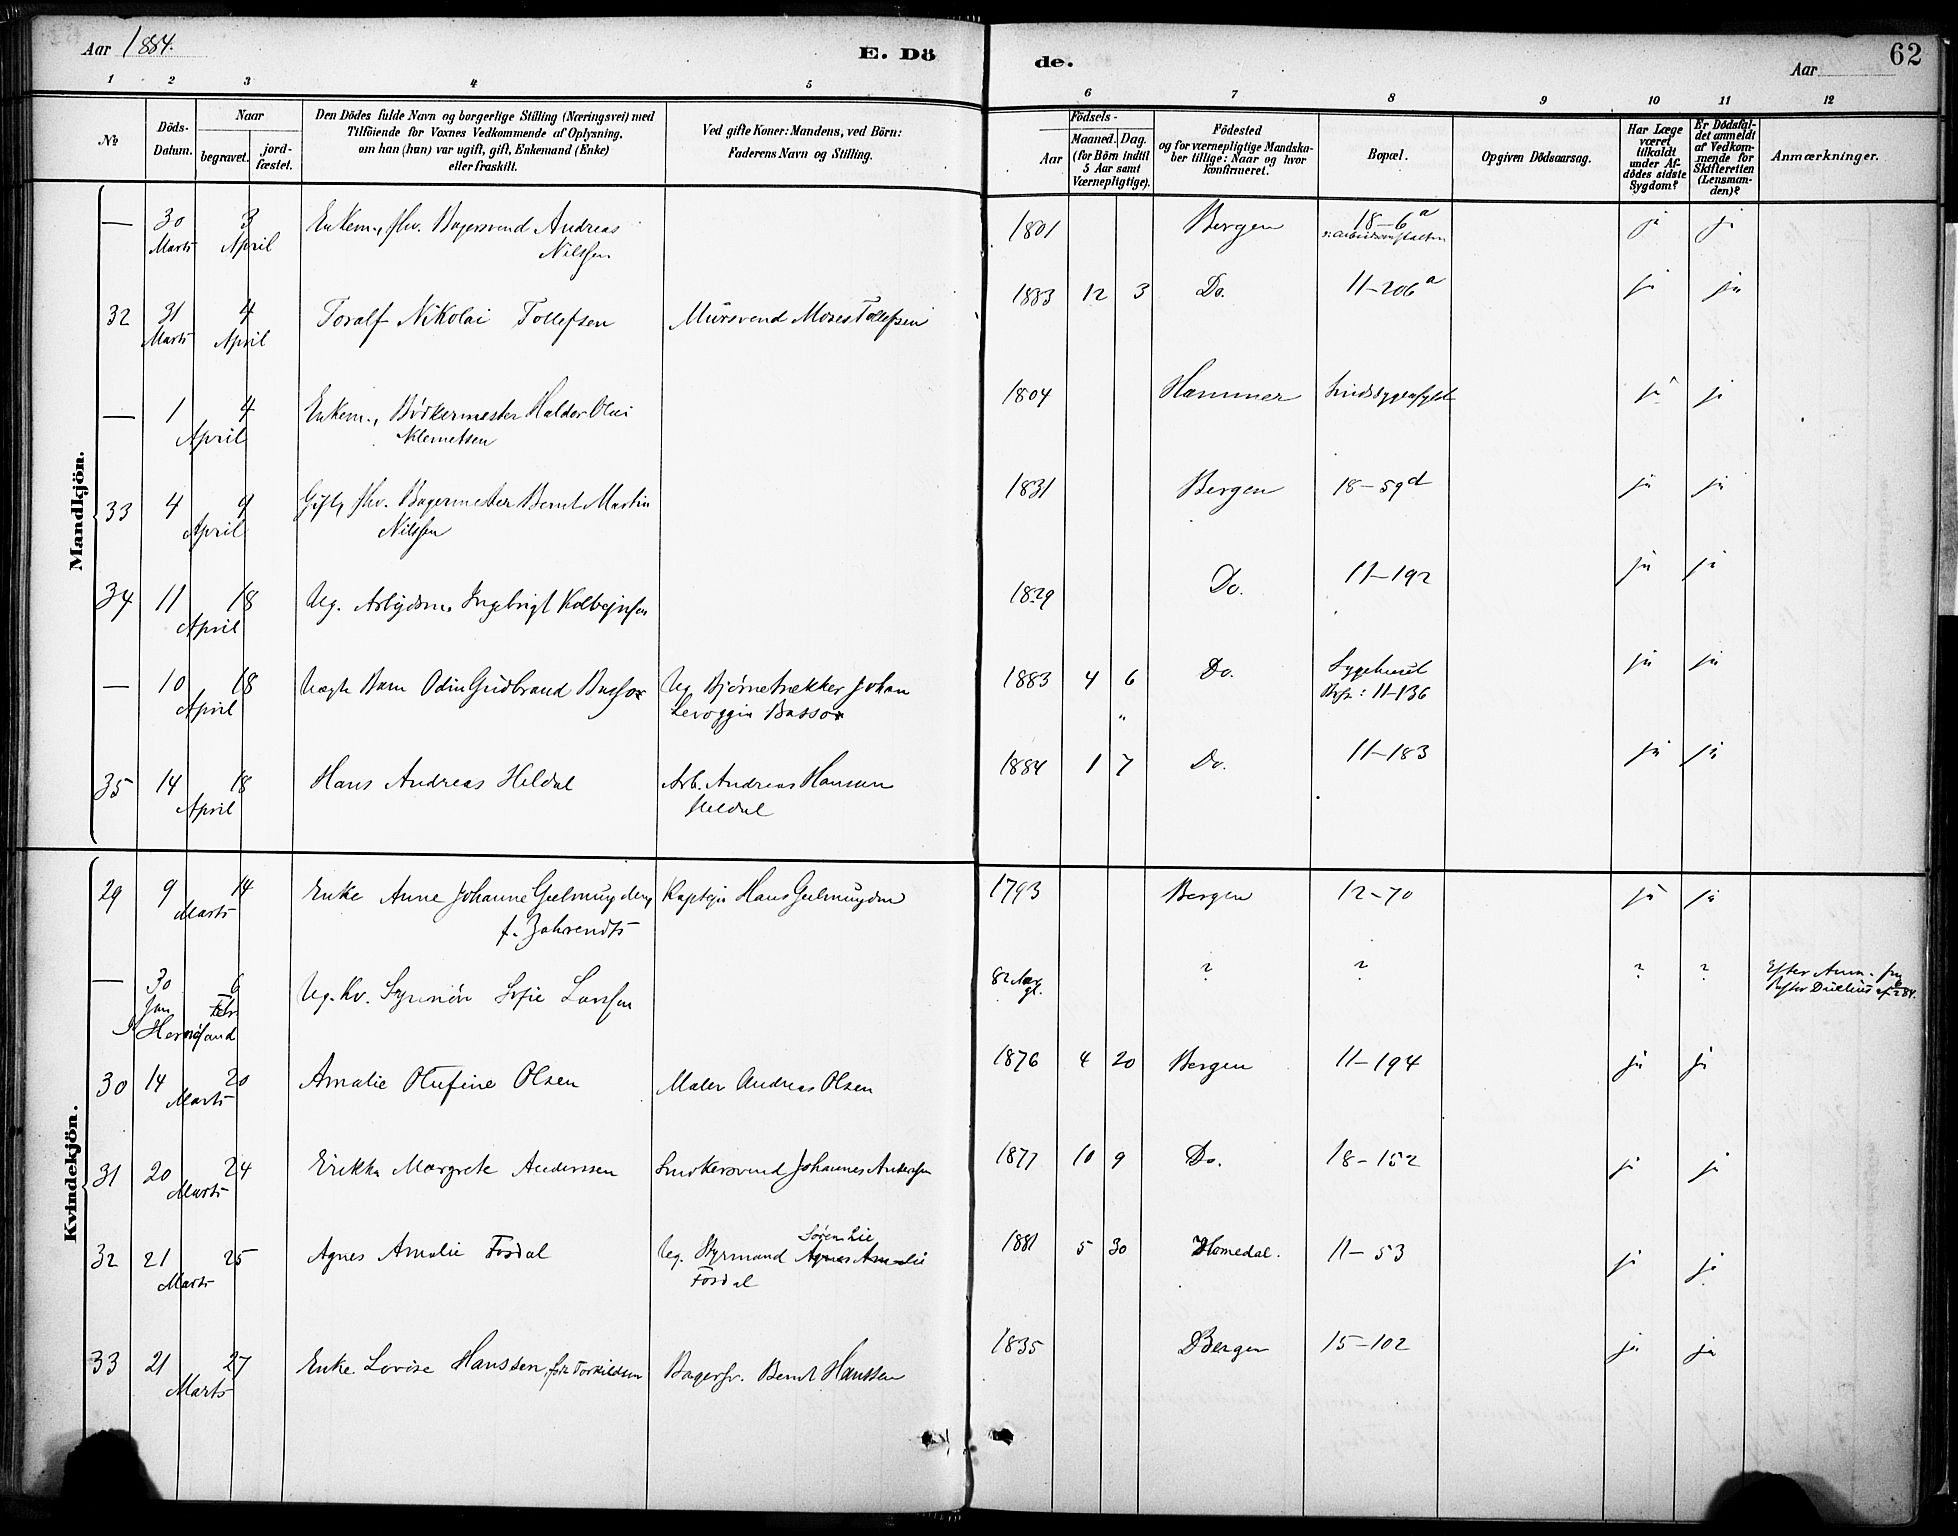 Aar 1884.
E. Dö
de.
62
Aar
1 2 3 4 5 6 7 8 9 10 11 12
№
Döds-
Datum.
Naar
begravet.
jord-
fæstet.
Den Dödes fulde Navn og borgerlige Stilling (Næringsvei) med
Tilföiende for Voxnes Vedkommende af Oplysning,
om han (hun) var ugift, gift, Enkemand (Enke)
eller fraskilt.
Ved gifte Koner: Mandens, ved Börn:
Faderens Navn og Stilling.
Födsels-
Aar
Maaned. Dag.
(for Börn indtil
5 Aar samt
Værnepligtige).
Födested
og for værnepligtige Mandska-
ber tillige: Naar og hvor
konfirmeret.
Bopæl.
Opgiven Dödsaarsag.
Har Læge
været
tilkaldt
under Af-
dödes sidste
Sygdom?
Er Dödsfal-
det anmeldt
af Vedkom-
mende for
Skifteretten
(Lensman-
den)?
Anmærkninger.
Mandkjön.
— 30 3 Enkem., fhv. Bagersvend Andreas 1801 Bergen 18–6a ja ja
Marts April Nilssen
32 31 4 Toralf Nikolai Tollefsen Mursvend Moses Tollefsen 1883 12 3 Do. 11–206a ja ja
Marts April
— 1 4 Enkem., Bödkermester Haldor Olai 1804 Hammer ja ja
April Klemetsen
33 4 9 Gift, fhv. Bagermester Bernt Martin 1831 Bergen 18–59d ja ja
April Nilssen
34 11 18 Ug. Arbejdsm. Ingebrigt Kolbejnsen 1829 Do. 11–192 ja ja
April
— 10 18 Uægte Barn Odin Gudbrand Basso Ug. Bjørnetrækker Johan 1883 4 6 Do. Sygehuset ja ja
April Levoggin Basso " 11–136
35 14 18 Hans Andreas Heldal Arb. Andreas Hansen 1884 1 7 Do. 11–183 ja ja
April Heldal
Kvindekjön.
29 9 14 Enke Anne Johanne Gelmuyden Kaptejn Hans Gelmuyden 1793 Bergen 12–70 ja ja
Marts f. Zahrendts
— 30 6 Ug. Kv. Synnøv Sofie Larssen 82 Aar ? ? ? ? Efter Anm. fra
Jan Febr gl. 
I Hernøsand
30 14 20 Amalie Olufine Olsen Maler Andreas Olsen 1876 4 20 Bergen 11–194 ja ja
Marts
31 20 24 Erikka Margrete Anderssen Snedkersvend Johannes Anderssen 1877 10 9 Do. 18–152 ja ja
Marts
Søren Lie
32 21 25 Agnes Amalie Fosdal Ug. Styrmand Agnes Amalie 1881 5 30 Homedal. 11–53 ja ja
Marts Fosdal
33 21 27 Enke Lovise Hanssen, født Torkildsen Bagersv. Bernt Hanssen 1835 Bergen 15–102 ja ja
Marts